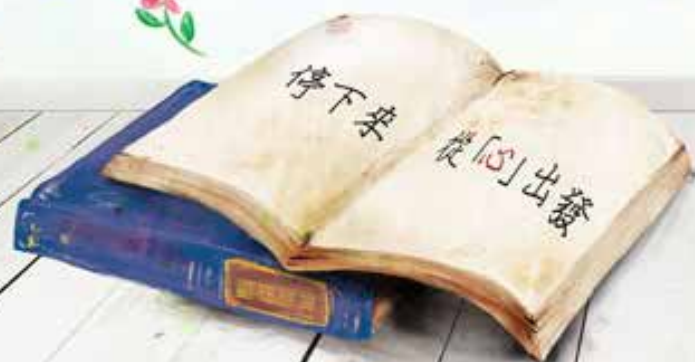 停下來
從「心」出發